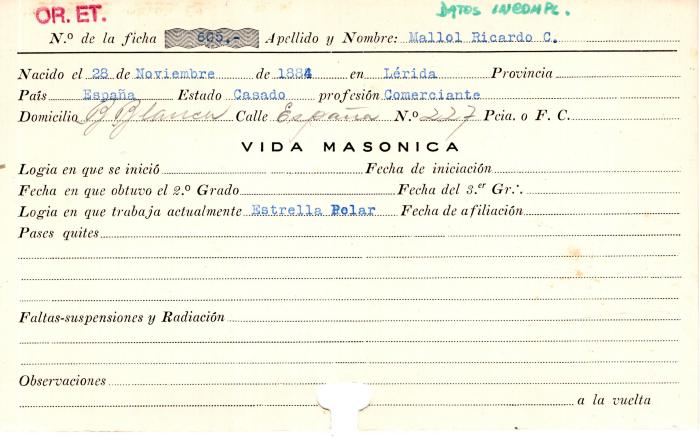 OR. ET.
DATOS INCOMPL.
N.º de la ficha 605,- Apellido y Nombre: Mallol Ricardo C.
Nacido el 28 de Noviembre de 1884 en Lérida Provincia
País España Estado Casado profesión Comerciante
Domicilia B Blanca Calle España N.º 227 Pcia. o F. C.
VIDA MASONICA
Logia en que se inició Fecha de iniciación
Fecha en que obtuvo el 2.º Grado Fecha del 3.er Gr∴
Logia en que trabaja actualmente Estrella Polar Fecha de afiliación
Pases quites
Faltas-suspensiones y Radiación
Observaciones
a la vuelta